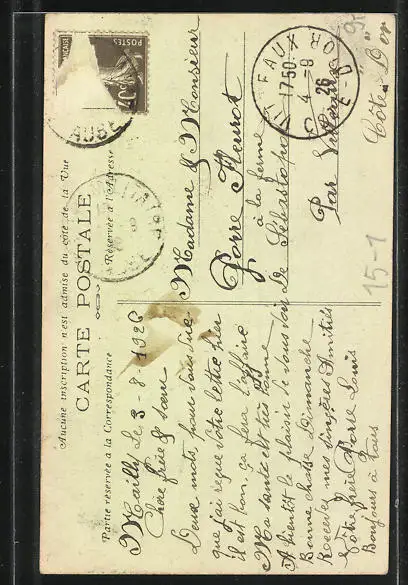 Aucune inscription n'est admise du côté de la Vue
CARTE POSTALE
Partie réservée à la Correspondance
Réservée à l'Adresse
Mailly le 3-8-1926
Chère frère & sœur
Deux mots pour vous dire
que j'ai reçue vôtre lettre hier
il est bon, ça fera l'affaire
Ma santé est très bonne
A bientôt le plaisir de vous voir
Bonne chasse dimanche
Recevez mes sincères Amitiés
Vôtre frère Porre Louis
Bonjours à tous
Madame & Monsieur
Porre Fleurot
à la ferme
De Sébastopol
Par Vitteaux
Côte d'Or
POSTES
40c
AUBE
VITTEAUX
17 50
4-8
26
COTE-D'OR
15-1